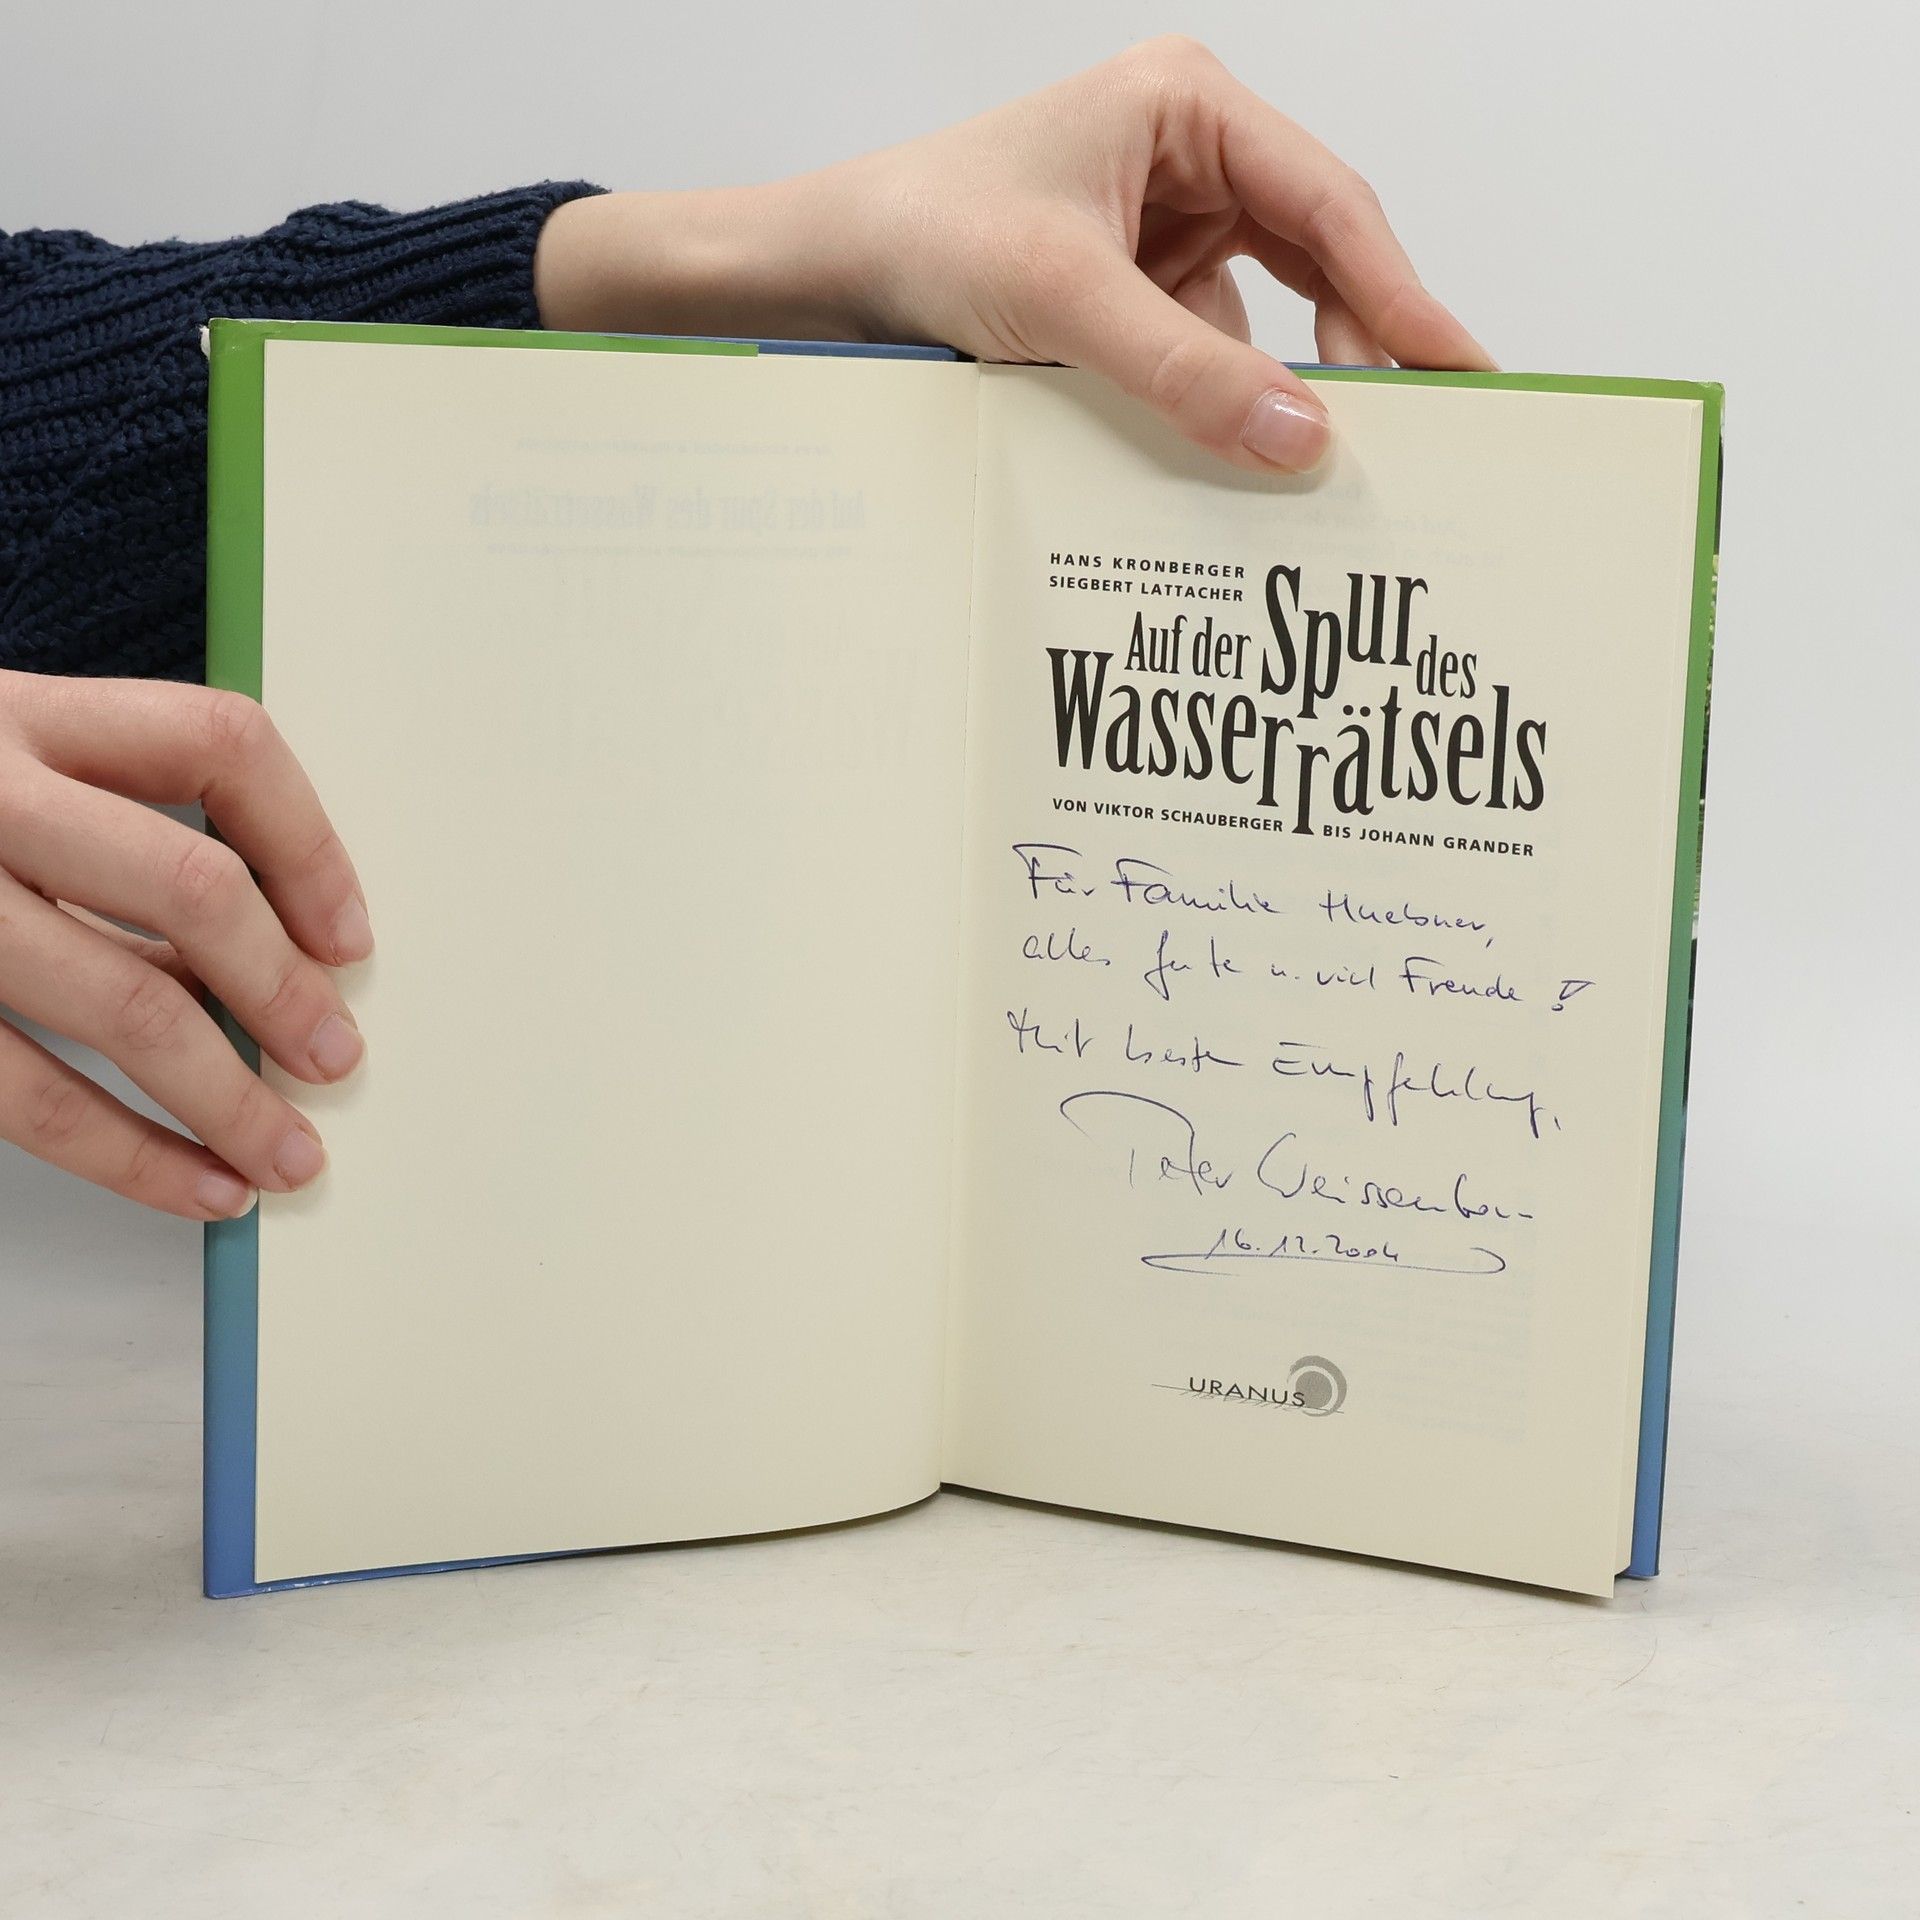 HANS KRONBERGER
SIEGBERT LATTACHER
Auf der Spur des
Wasserrätsels
VON VIKTOR SCHAUBERGER BIS JOHANN GRANDER
Für Familie Huebner,
alles Gute u. viel Freude!
Mit bester Empfehlung,
Peter
16.12.2004
URANUS